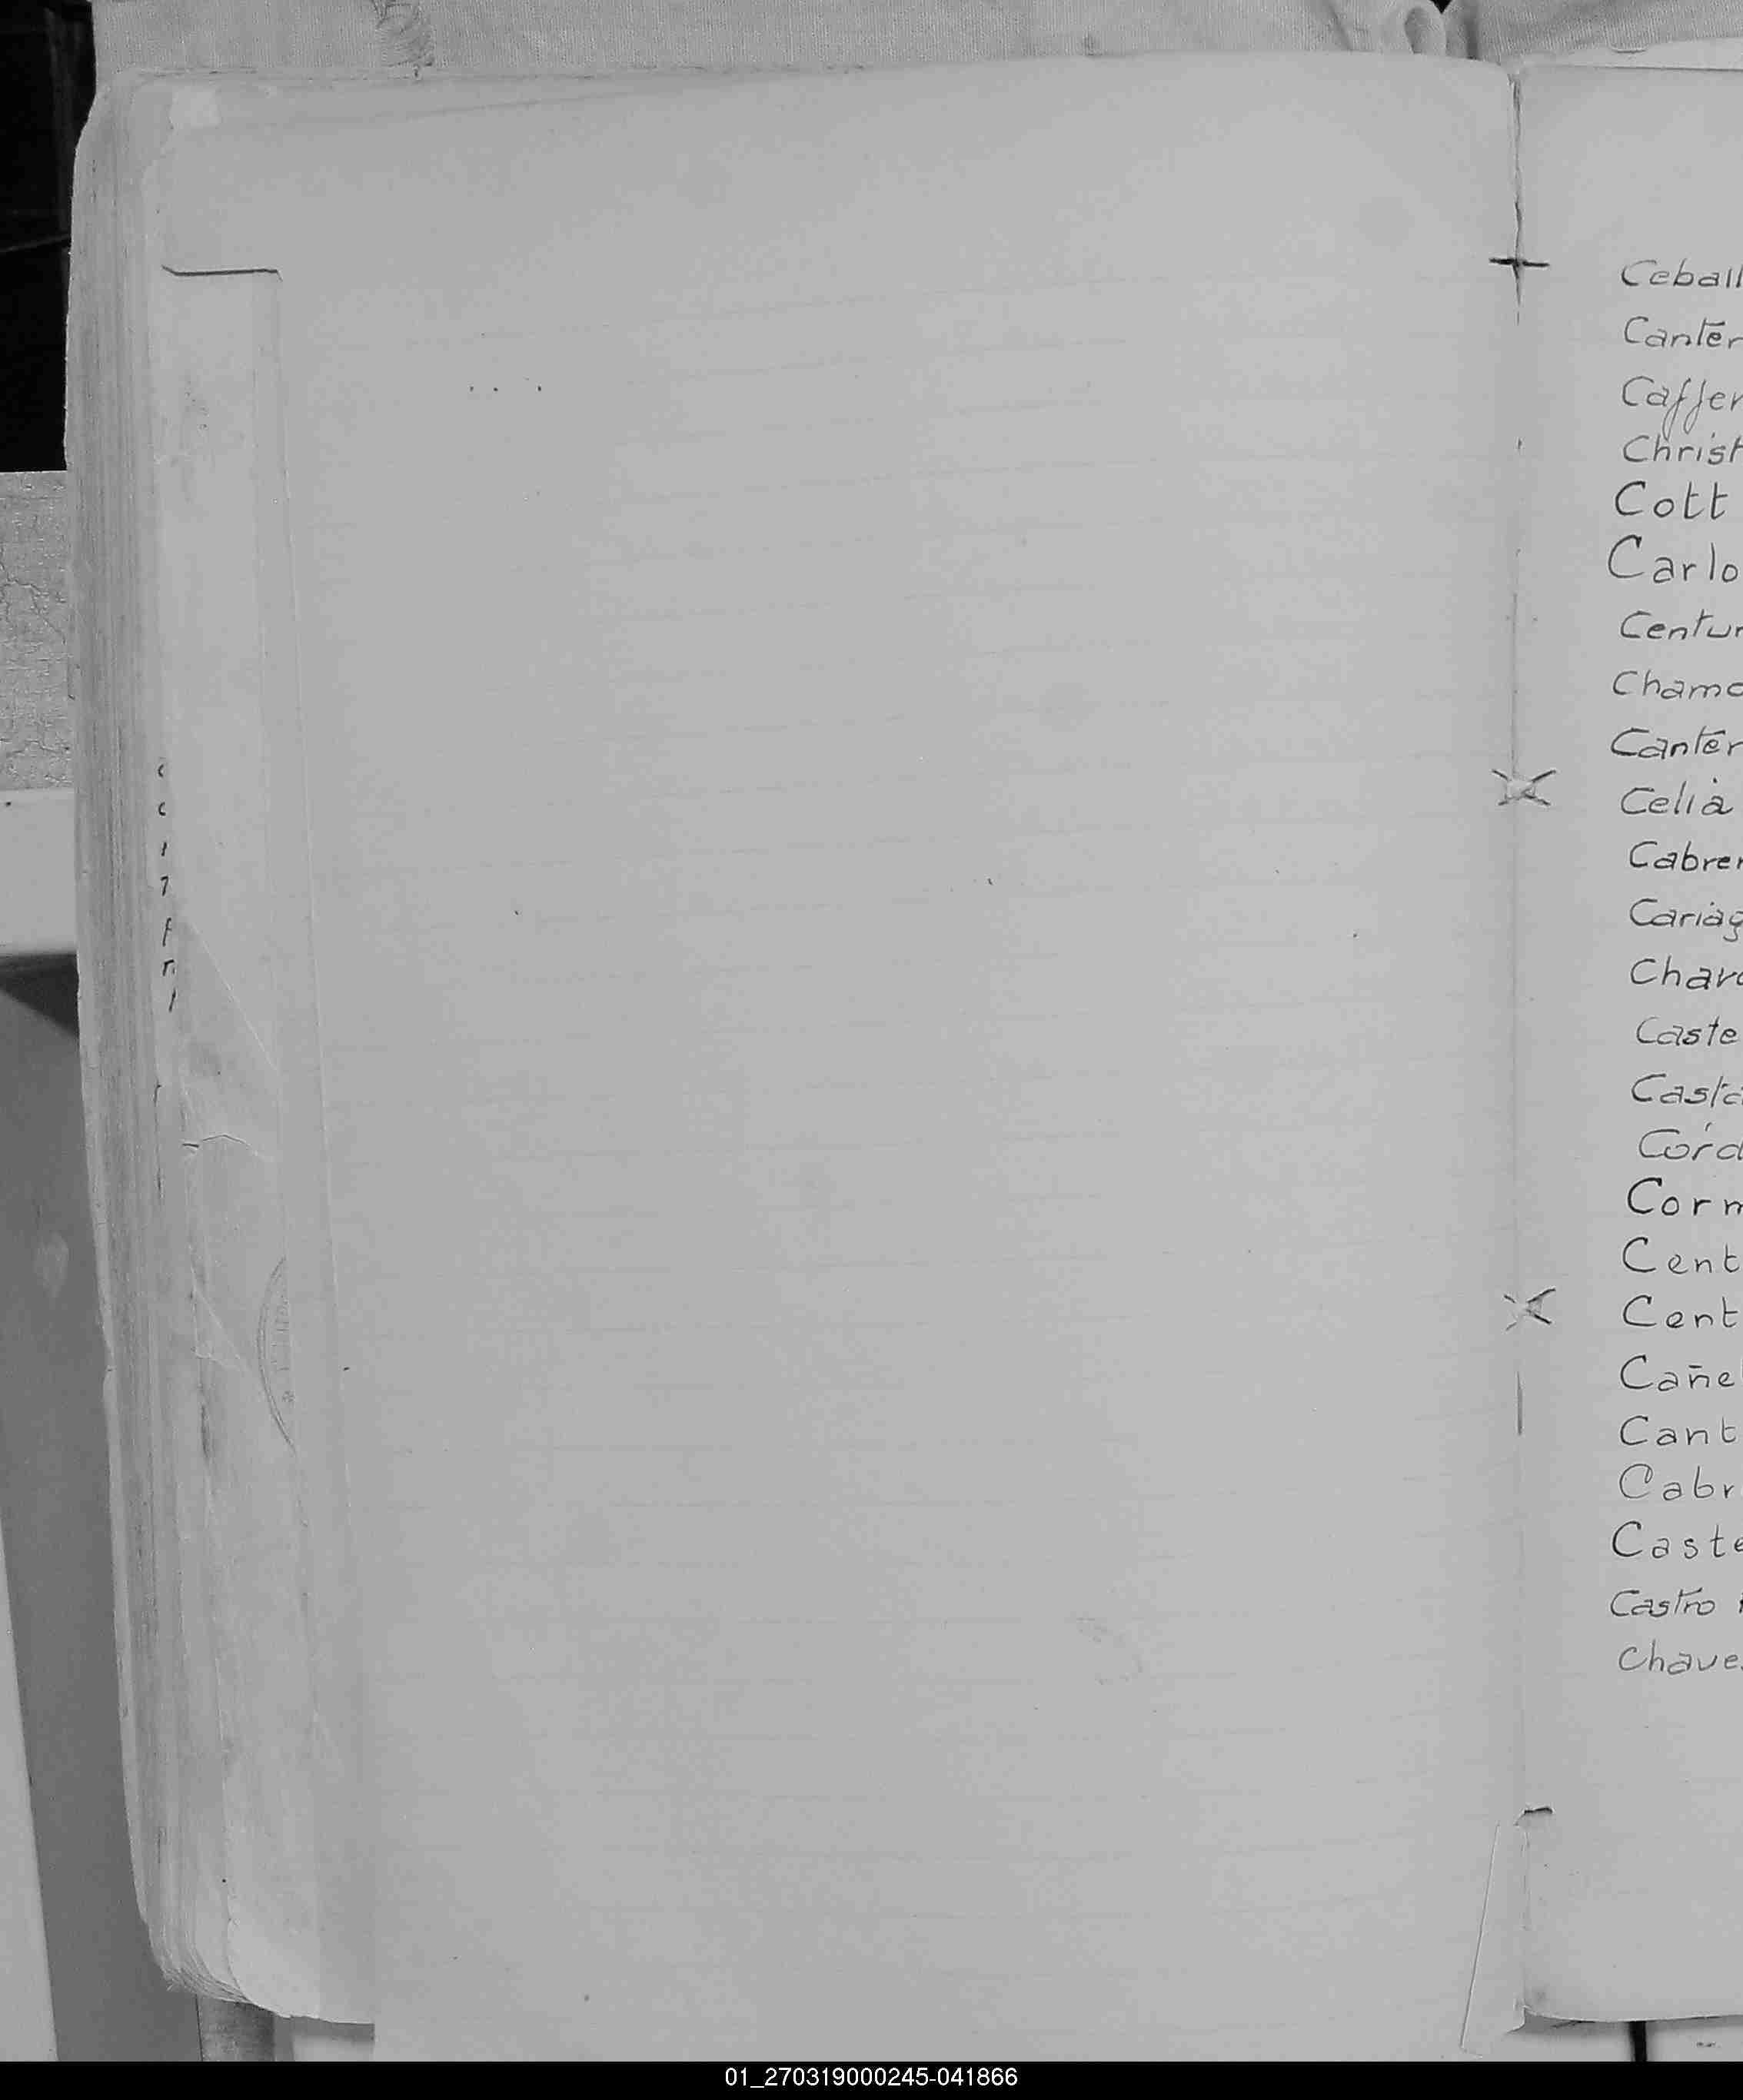 Ceball
Canter
Caffer
Christ
Cott
Carlo
Centur
Chamo
Canter
Celia
Cabrer
Cariag
Chavo
Caste
Casta
Córd
Corm
Cent
Cent
Cañel
Cant
Cabr
Caste
Castro
Chaves
01_270319000245-041866